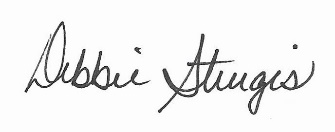 Debbie Sturgis